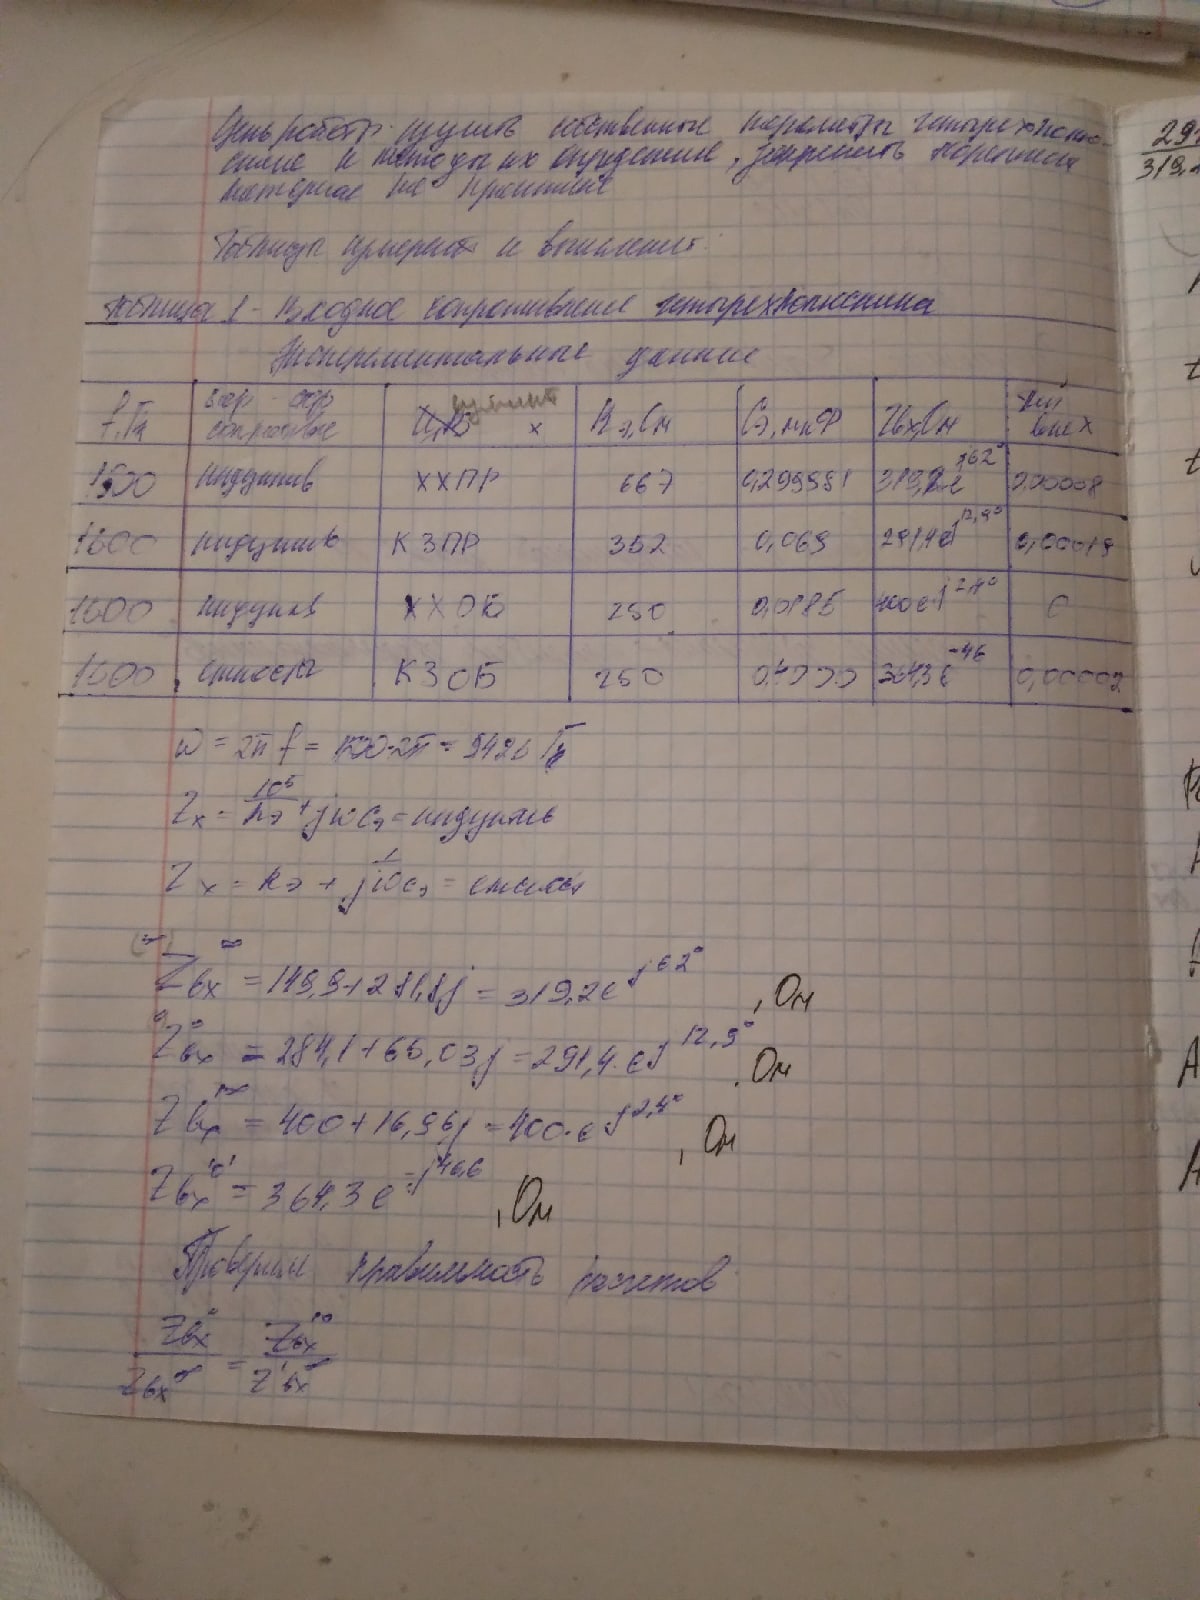 Цель работы: изучить собственные параметры четырехполю-
сника и методы их определения, закрепить
материал на практике
Таблицы измерений и вычислений.
Таблица 1 - Входное сопротивление четырехполюсника
Экспериментальные данные
f, Гц | хар-тер сопротивление | х | Rэ, Ом | Cэ, мкФ | Zвх, Ом
1500 | индуктив | ХХПР | 667 | 0,299991 | 319,2e^j62° | 0,00008
1500 | индуктив | КЗПР | 352 | 0,069 | 291,4e^j12,9° | 0,00019
1500 | индуктив | ХХОБ | 250 | 0,0185 | 400e^j2,4° | 0
1500 | емкость | КЗОБ | 250 | 364,3e^-46 | 0,00002
ω = 2πf = 1500·2π = 9426 Гц
Zx = 10^5/Rэ + jωCэ = индуктивь
Zx = Rэ + 1/jωCэ = емкость
Zвх^∞ = 149,9+281,8j = 319,2e^j62° , Ом
Zвх^0 = 284,1+65,03j = 291,4·e^j12,9° , Ом
Zвх = 400+16,96j = 400·e^j2,4° , Ом
Zвх = 364,3e^-j46,6 , Ом
Проверим правильность расчетов
Zвх^0/Zвх^∞ = Z'вх^0/Z'вх^∞
319,